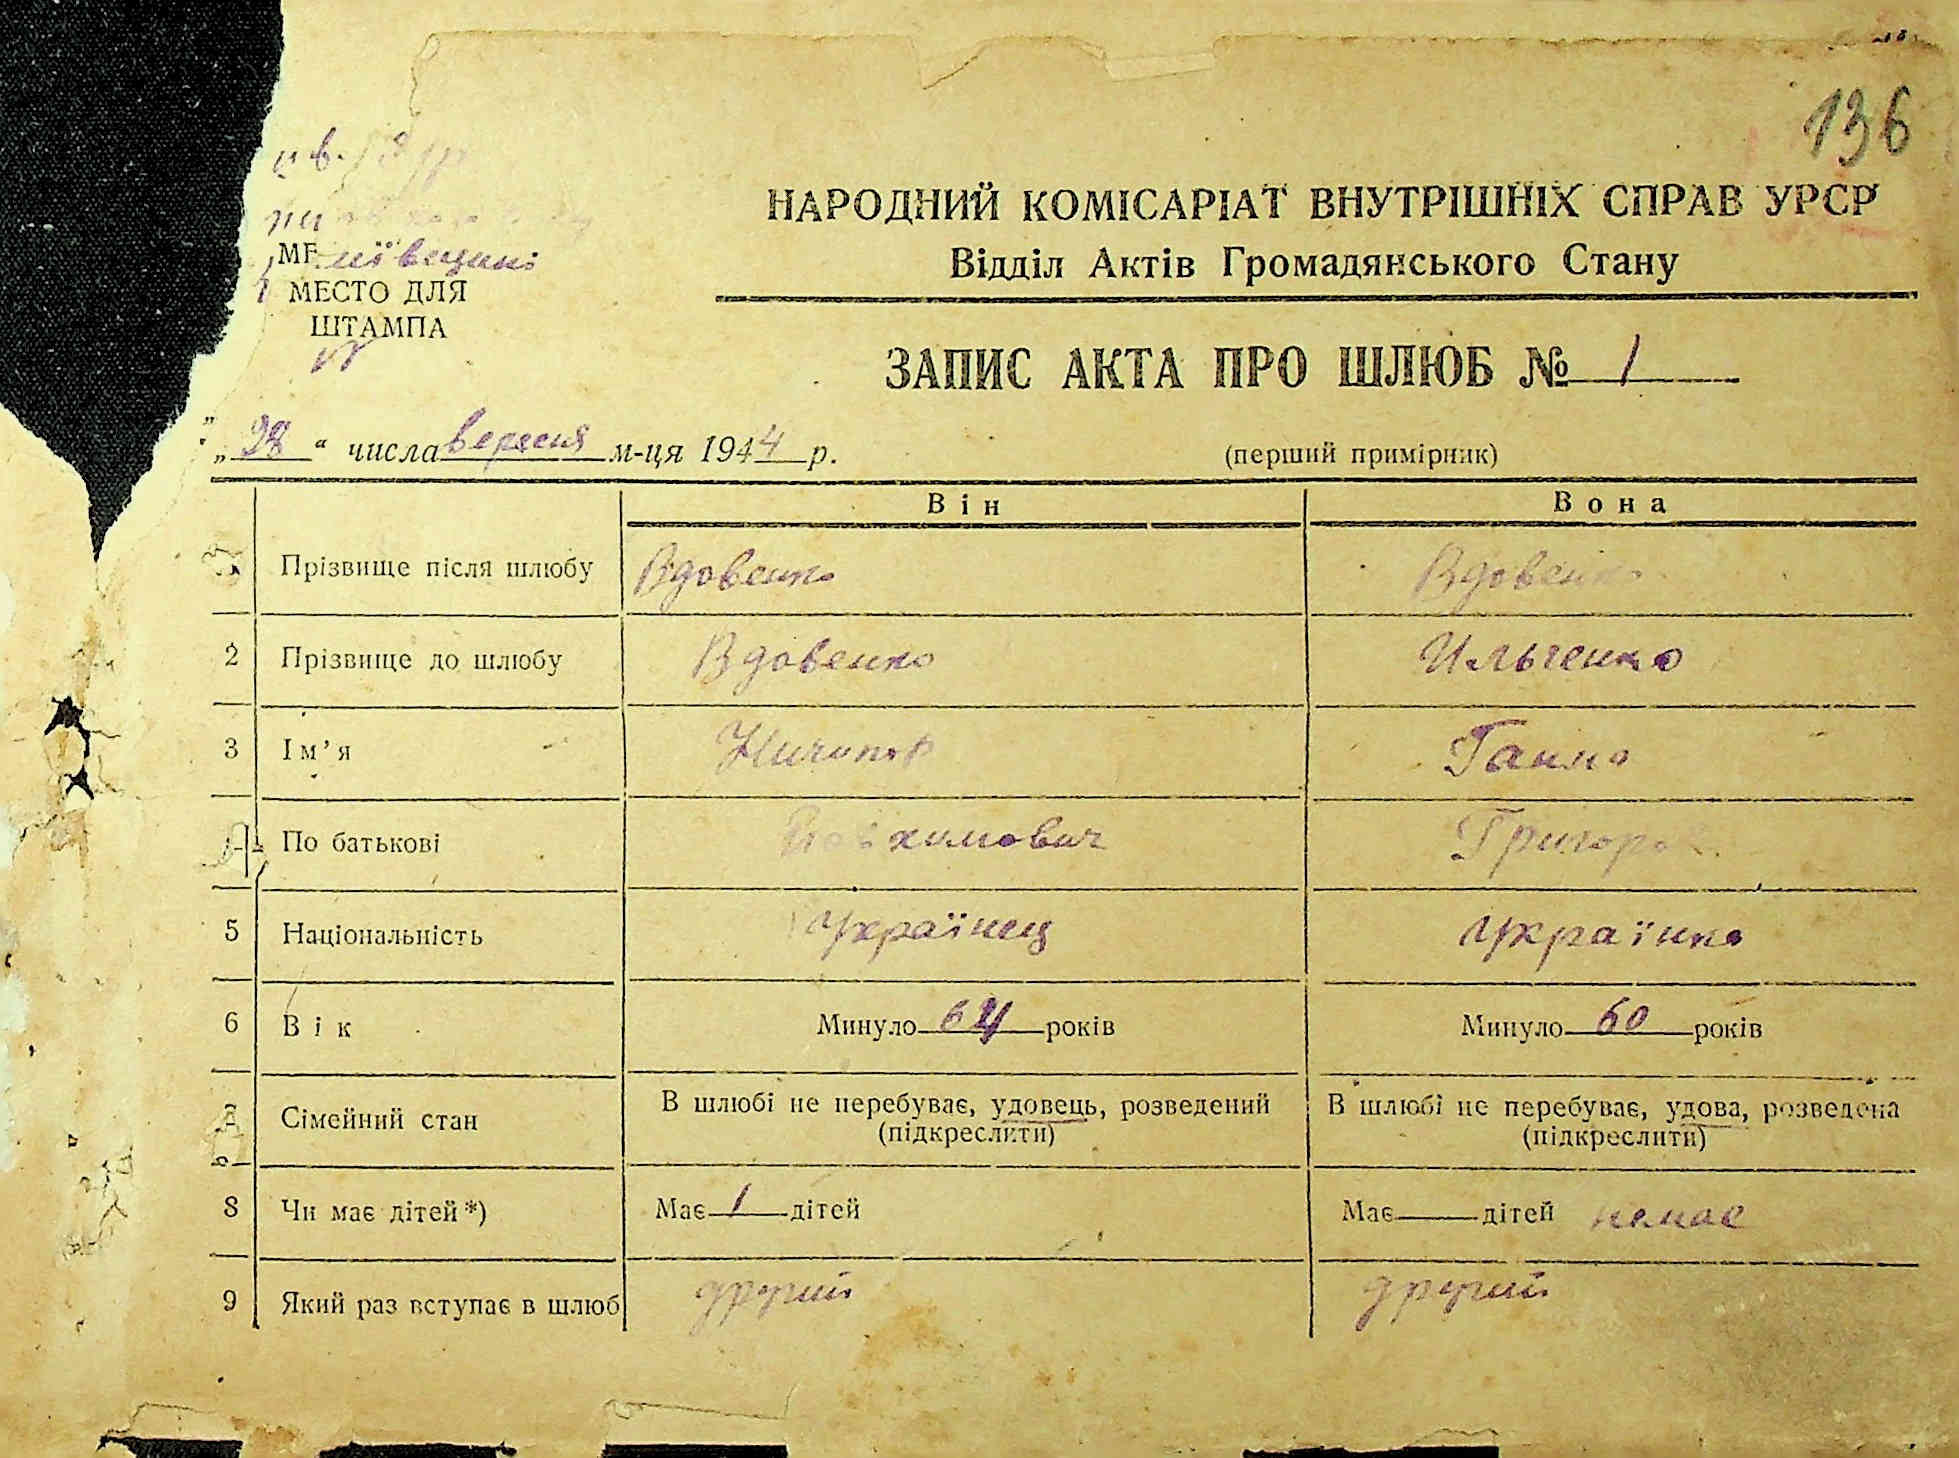 136
НАРОДНИЙ КОМІСАРІАТ ВНУТРІШНІХ СПРАВ УРСР
Відділ Актів Громадянського Стану
МЕСТО ДЛЯ
ШТАМПА
ЗАПИС АКТА ПРО ШЛЮБ № 1
„28“ числа вересня м-ця 1944 р.
(перший примірник)
Він Вона
Прізвище після шлюбу Вдовенко Вдовенко
2 Прізвище до шлюбу Вдовенко Ильченко
3 Ім'я Ничипор Ганна
По батькові Григор
5 Національність Українец Українка
6 Вік Минуло 64 років Минуло 60 років
7 Сімейний стан В шлюбі не перебуває, удовець, розведений (підкреслити) В шлюбі не перебуває, удова, розведена (підкреслити)
8 Чи має дітей*) Має 1 дітей Має дітей немає
9 Який раз вступає в шлюб другий другий